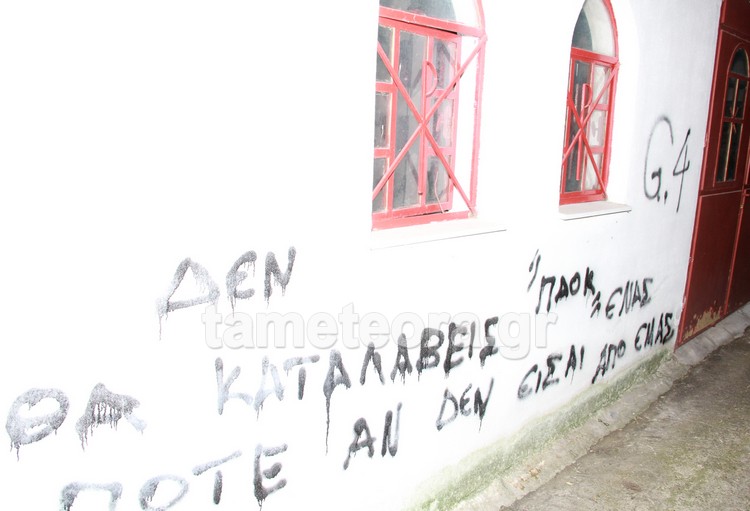 G.4
ΔΕΝ
ΘΑ ΚΑΤΑΛΑΒΕΙΣ "ΠΑΟΚ" ΕΝΑΣ
ΠΟΤΕ ΑΝ ΔΕΝ ΕΙΣΑΙ ΑΠΟ ΕΜΑΣ
tameteora.gr